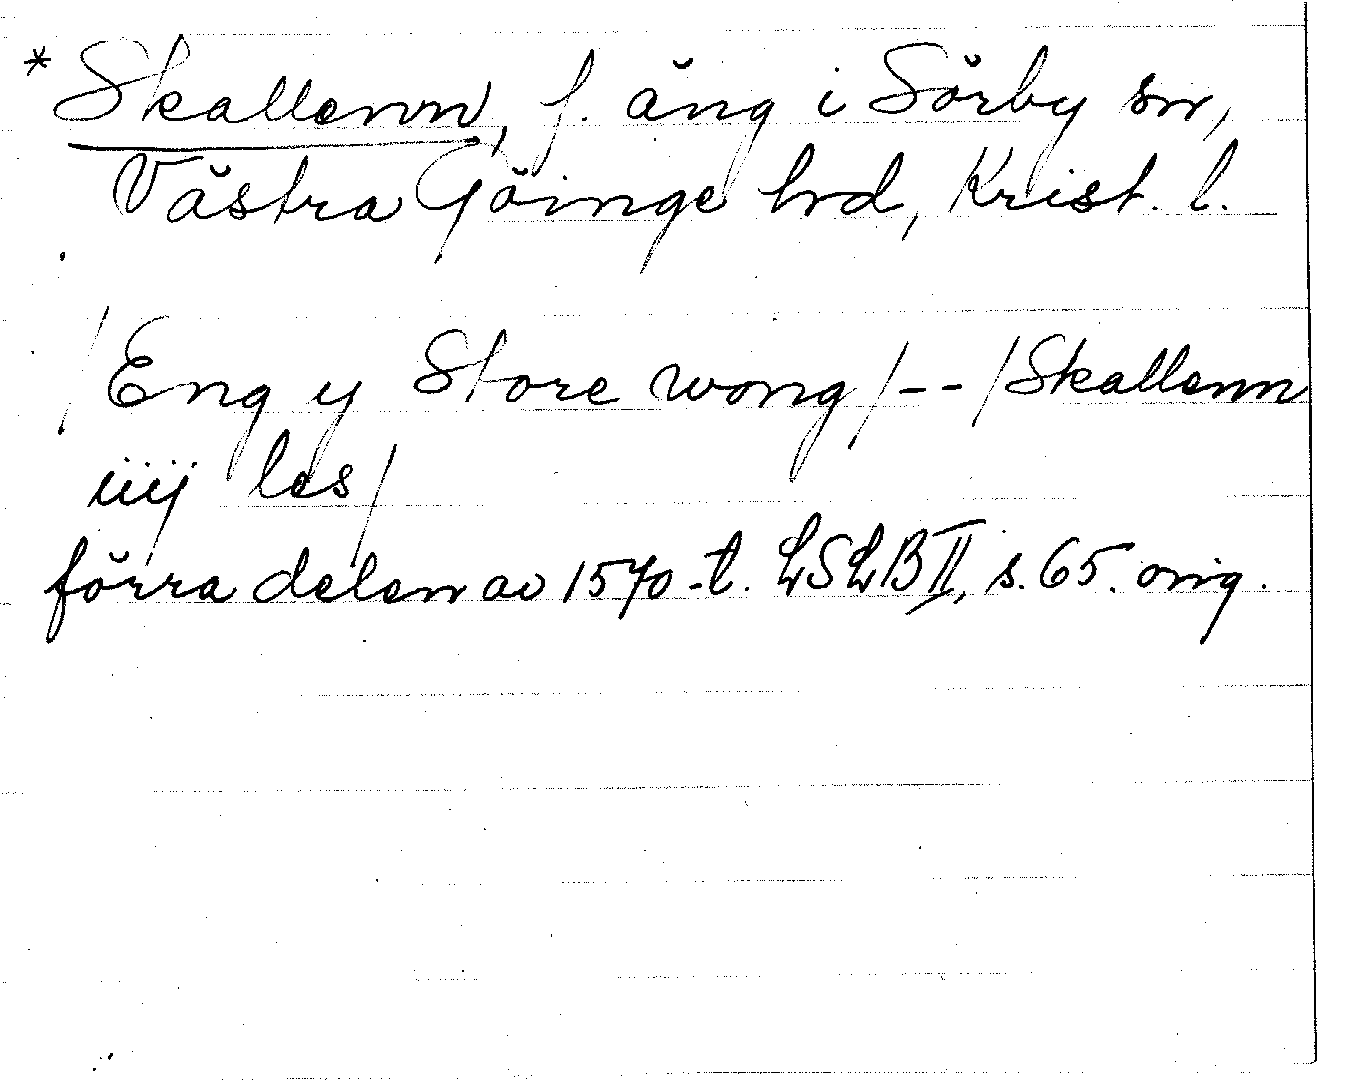 * Skallenn, f. äng i Sörby sn,
Västra Göinge hrd, Krist. l.
/Eng y Store wong/--/Skallenn
iiij les/
förra delen av 1570-t. LSLB II, s. 65. orig.